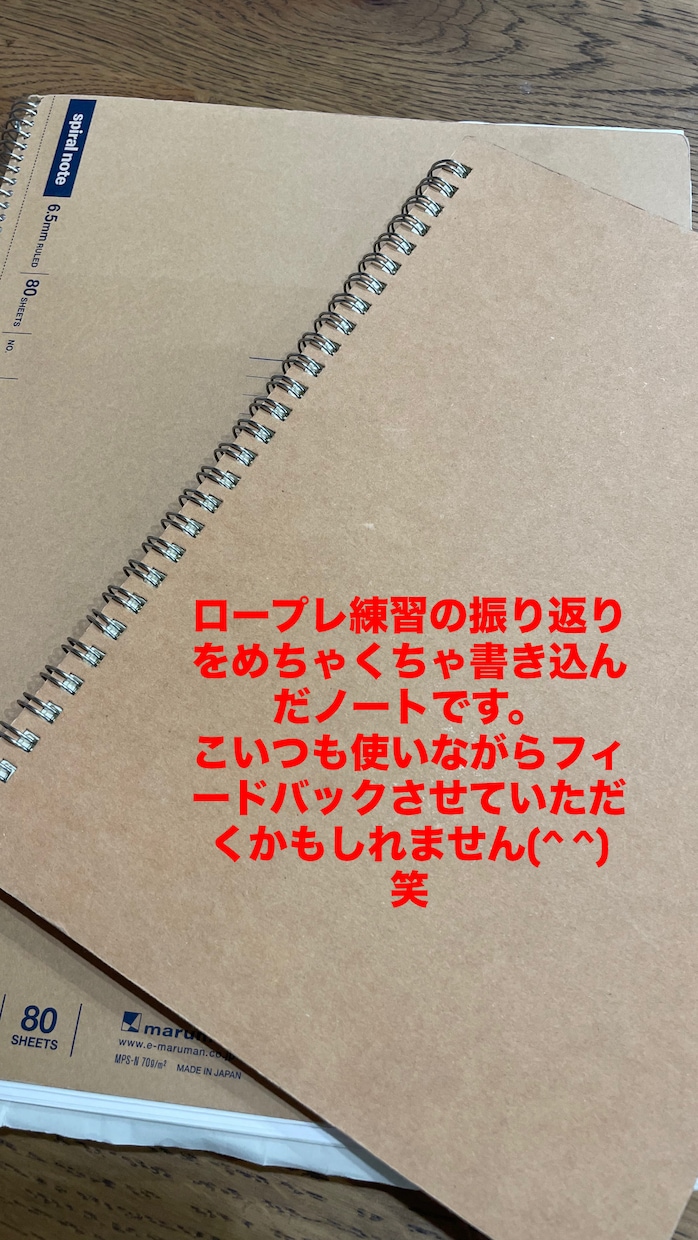 spiral note
6.5mm RULED
80 SHEETS
NO.
ロープレ練習の振り返り
をめちゃくちゃ書き込ん
だノートです。
こいつも使いながらフィ
ードバックさせていただ
くかもしれません(^ ^)
笑
80
SHEETS
www.e-maruman.co
MPS-N 70g/m²
MADE IN JAPAN